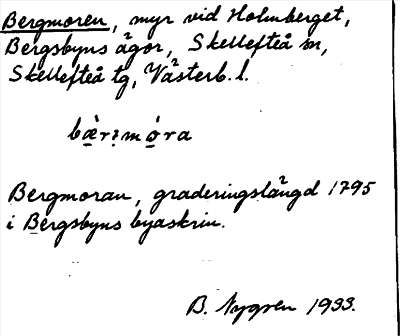 Bergmoren, myr vid Holmberget,
Bergsbyns ägor, Skellefteå sn,
Skellefteå tg, Västerb. l.
bæ̀rmó̱ra
Bergmoran, graderingslängd 1795
i Bergsbyns byaskrin.
B. Nygren 1933.